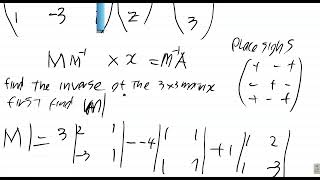 (1 -3 1) (z) (3)
M M⁻¹ × x = M⁻¹A
Place signs
find the inverse of the 3x3 matrix
first find |M|
(+ - +
- + -
+ - +)
M| = 3 |2 1 -3 1| - -4 |1 1 1 1| + 1 |1 2 1 -3|